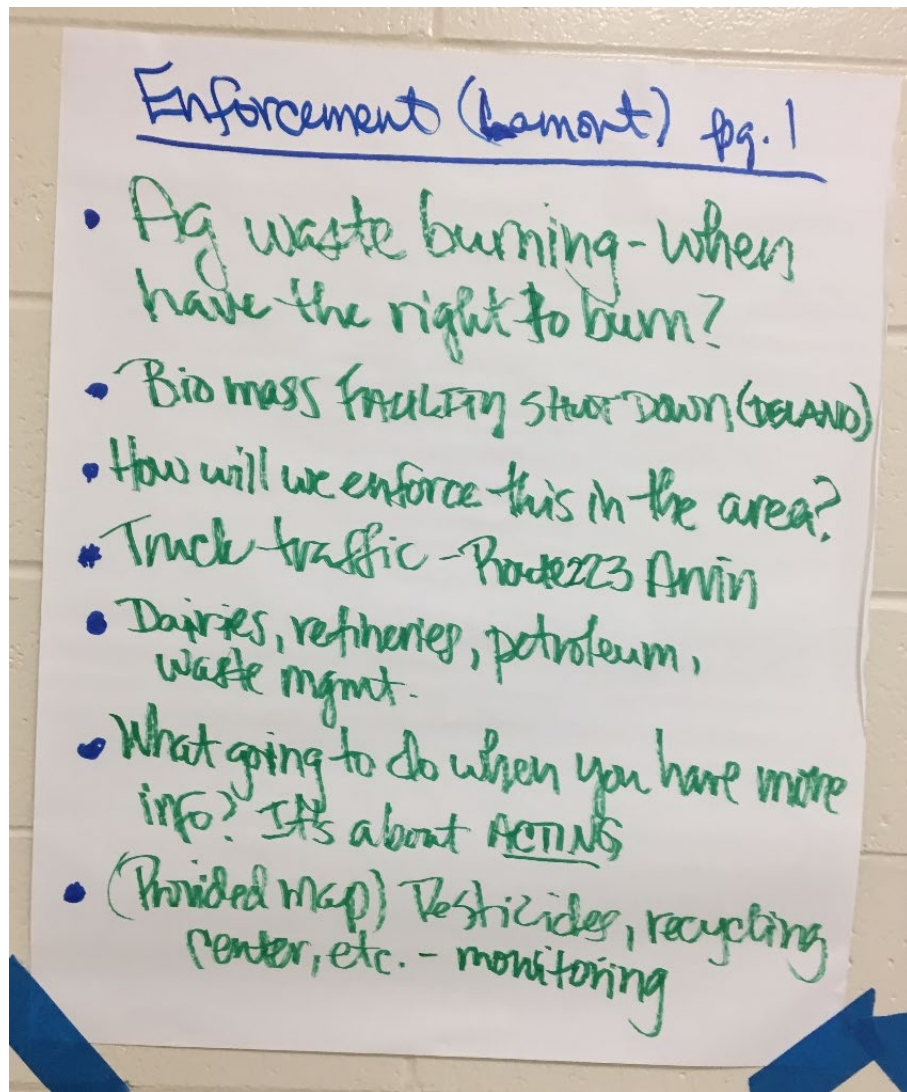 Enforcement (Lamont) pg. 1
• Ag waste burning - when
have the right to burn?
• Bio mass FACILITY SHUT DOWN (DELANO)
• How will we enforce this in the area?
• Truck traffic - Route 223 Arvin
• Dairies, refineries, petroleum,
waste mgmt.
• What going to do when you have more
info? It's about ACTING
• (Provided map) Pesticides, recycling
center, etc. - monitoring